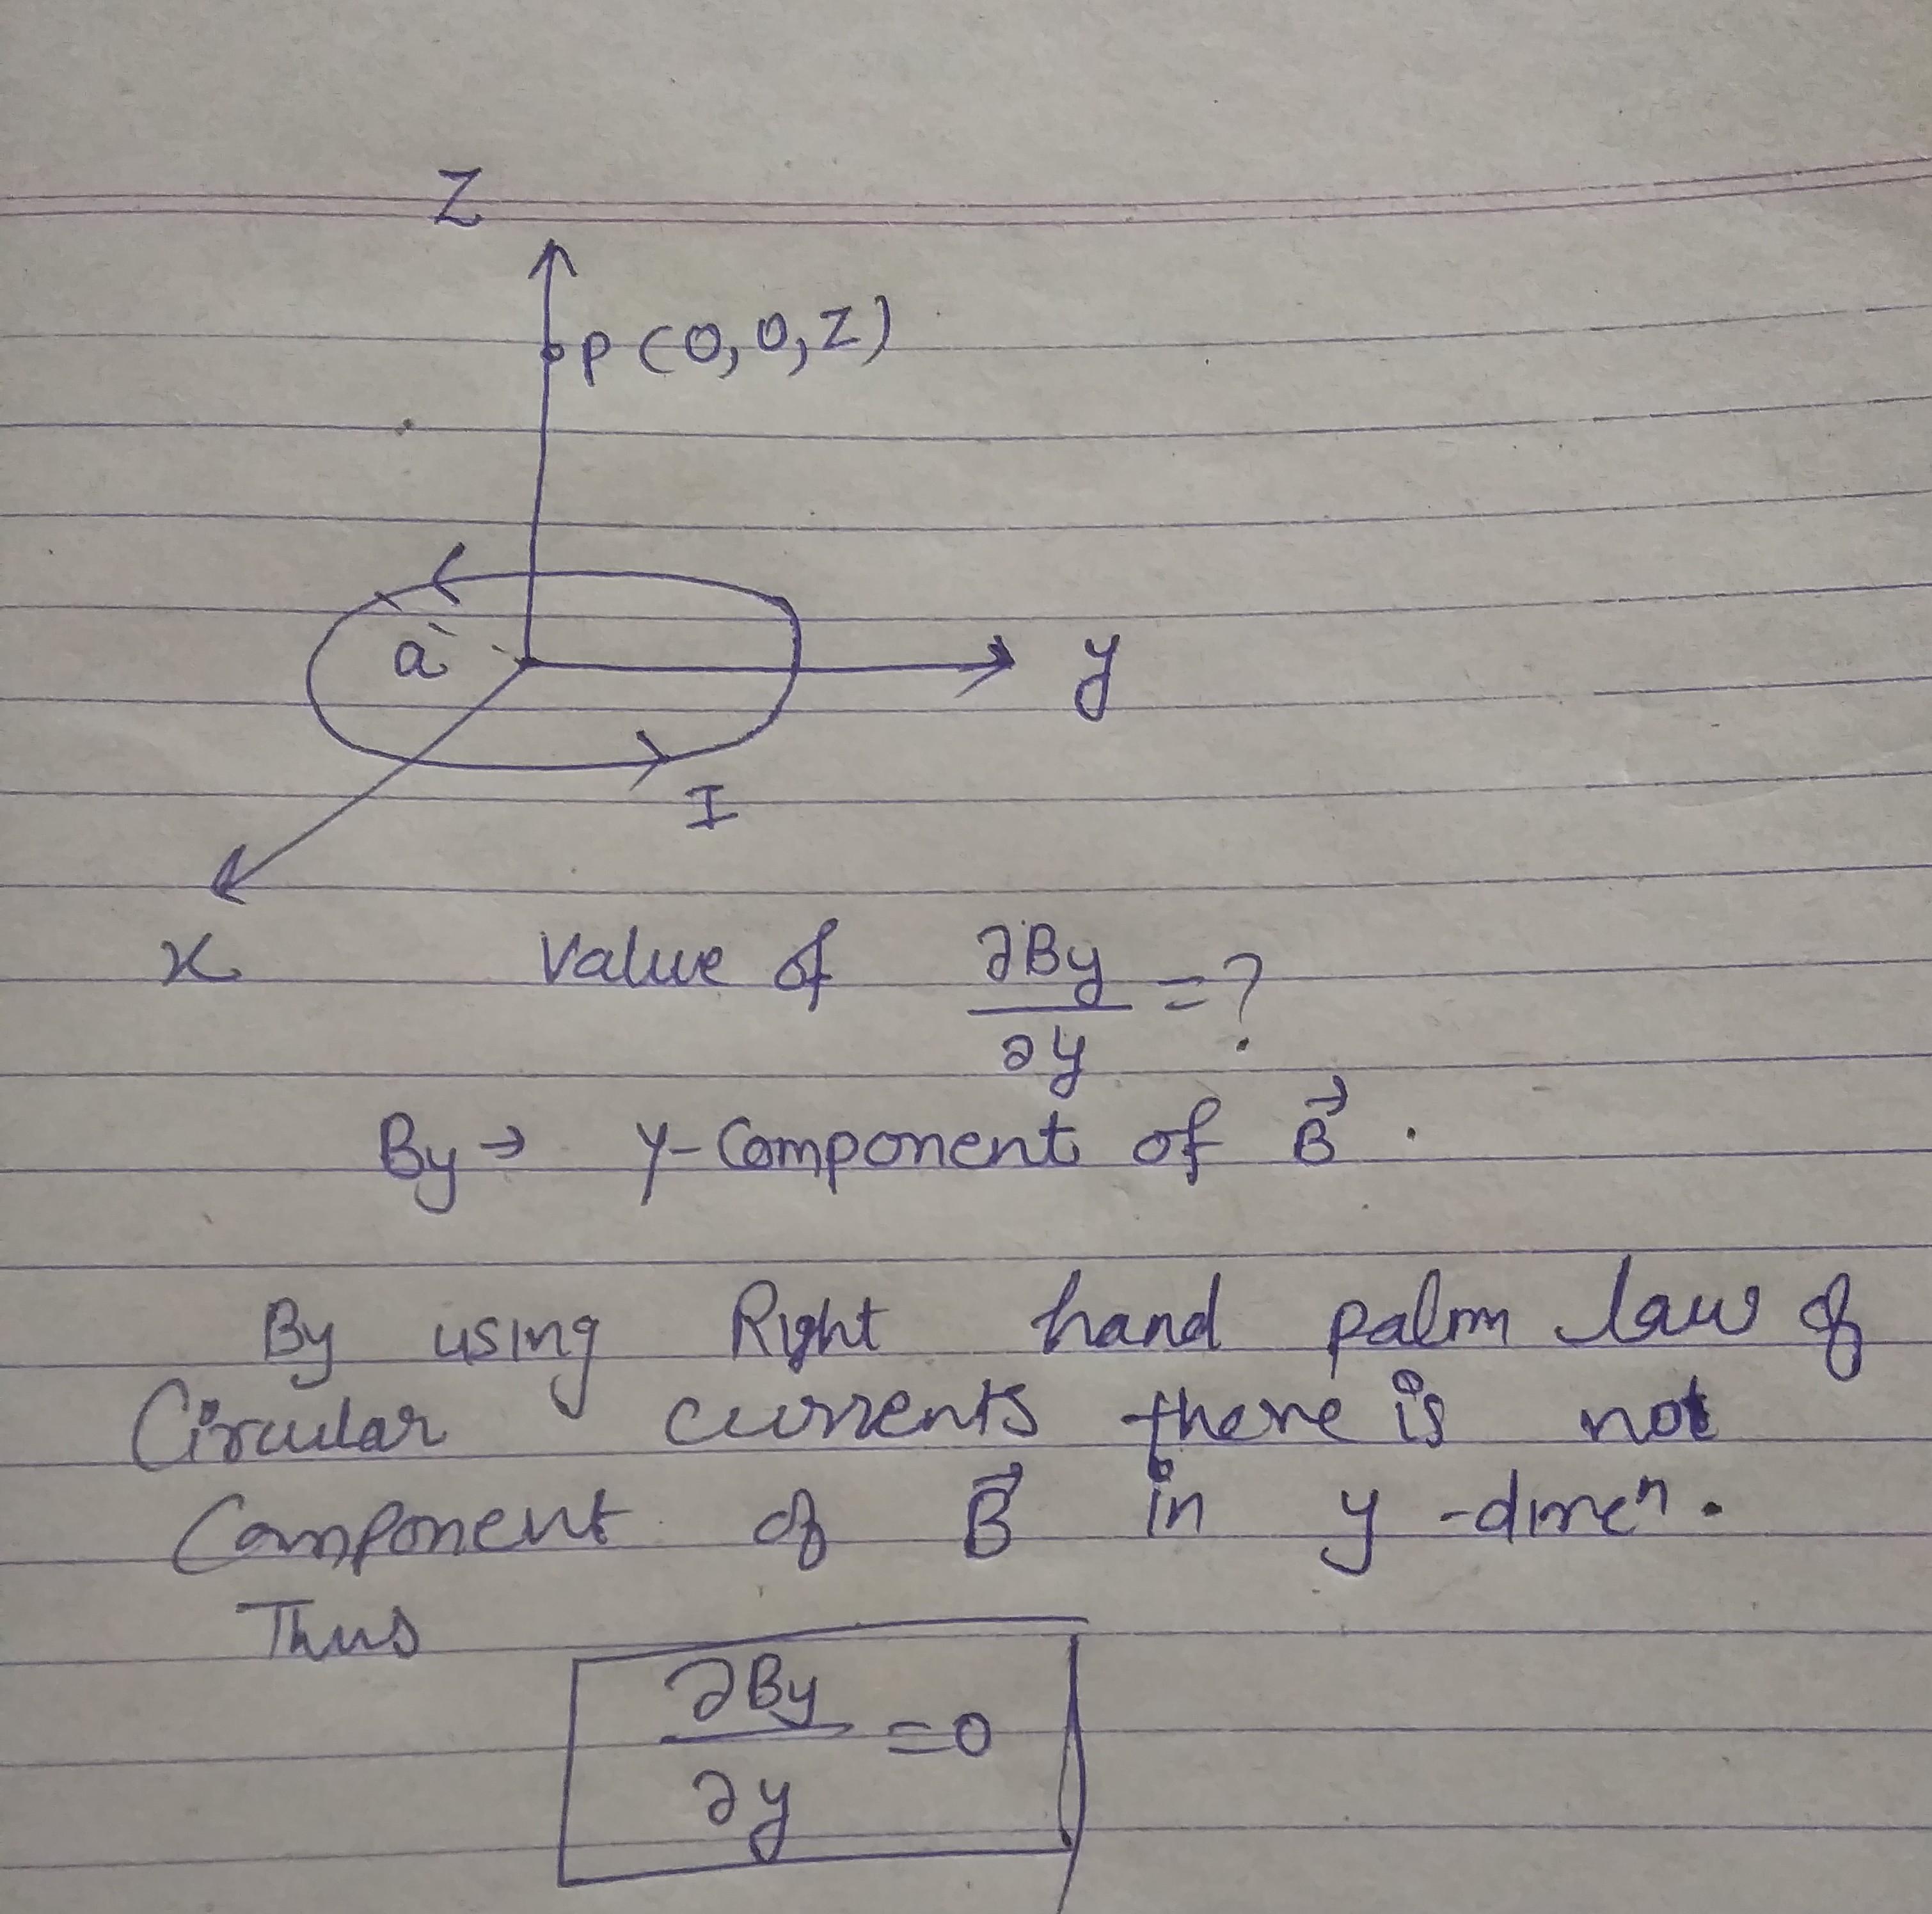 Z
P(0,0,Z)
a
y
I
x
Value of ∂By/∂y = ?
By → y-Component of B⃗ .
By using Right hand palm law of
Circular currents there is not
Component of B⃗ in y -dimen.
Thus
∂By/∂y = 0